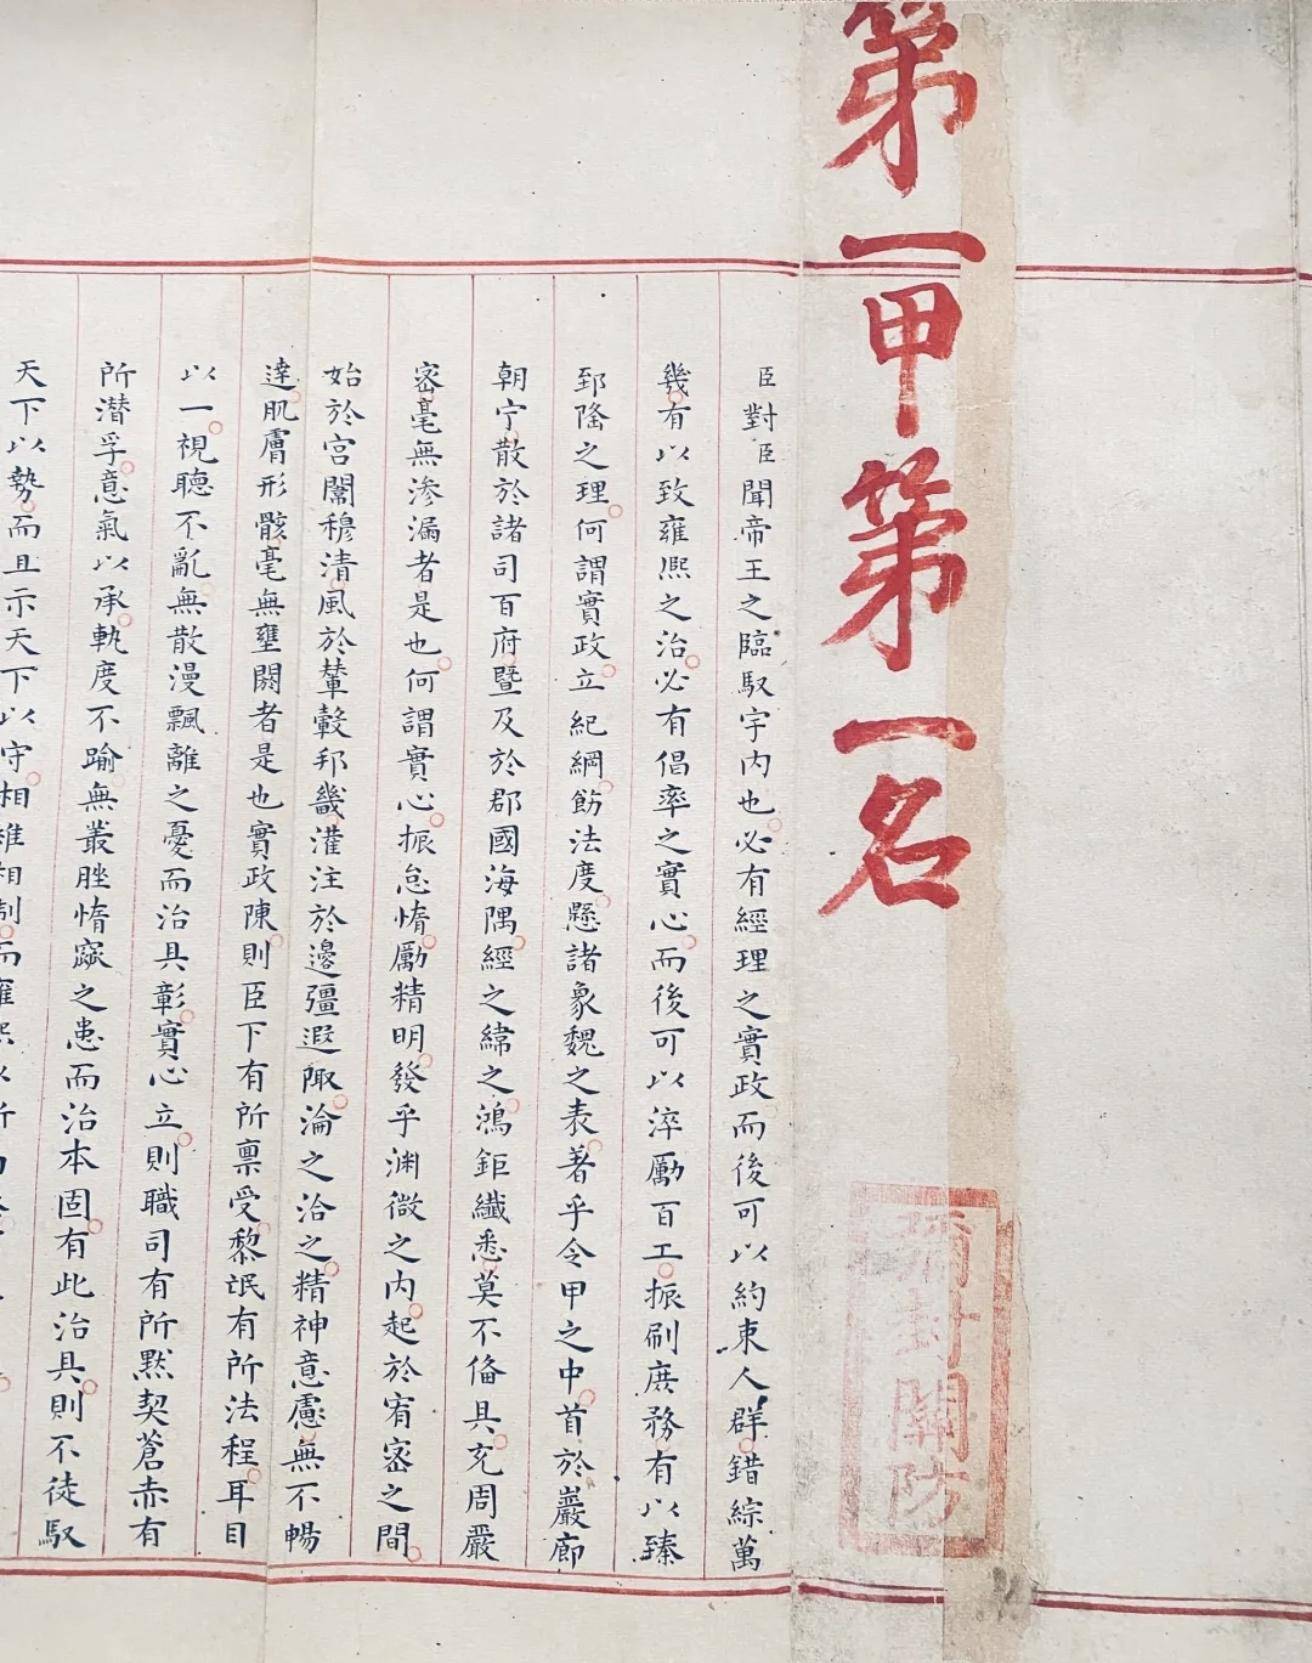 第一甲第一名
彌封關防
臣對臣聞帝王之臨馭宇內也必有經理之實政而後可以約束人群錯綜萬
幾有以致雍熙之治必有倡率之實心而後可以淬勵百工振刷庶務有以臻
郅隆之理何謂實政立紀綱飭法度懸諸象魏之表著乎令甲之中首於巖廊
朝宁散於諸司百府暨及於郡國海隅經之緯之鴻鉅纖悉莫不偹具充周嚴
宻毫無滲漏者是也何謂實心振怠惰勵精明發乎渊微之內起於宥宻之間
始於宮闈穆清風於輦轂邦畿灌注於邊彊遐陬淪之洽之精神意慮無不暢
逹肌膚形骸毫無壅閼者是也實政陳則臣下有所禀受黎氓有所法程耳目
以一視聽不亂無散漫飄離之憂而治具彰實心立則職司有所默契蒼赤有
所潜孚意氣以承軌度不踰無叢脞惰窳之患而治本固有此治具則不徒馭
天下以勢而且示天下以守相維相制而雍熙以所